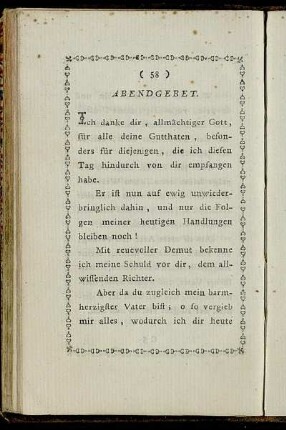 ( 58 )
ABENDGEBET.
Ich danke dir, allmächtiger Gott,
für alle deine Gutthaten, beson-
ders für diejenigen, die ich diesen
Tag hindurch von dir empfangen
habe.
Er ist nun auf ewig unwieder-
bringlich dahin, und nur die Fol-
gen meiner heutigen Handlungen
bleiben noch!
Mit reuevoller Demut bekenne
ich meine Schuld vor dir, dem all-
wissenden Richter.
Aber da du zugleich mein barm-
herzigster Vater bist; o so vergieb
mir alles, wodurch ich dir heute